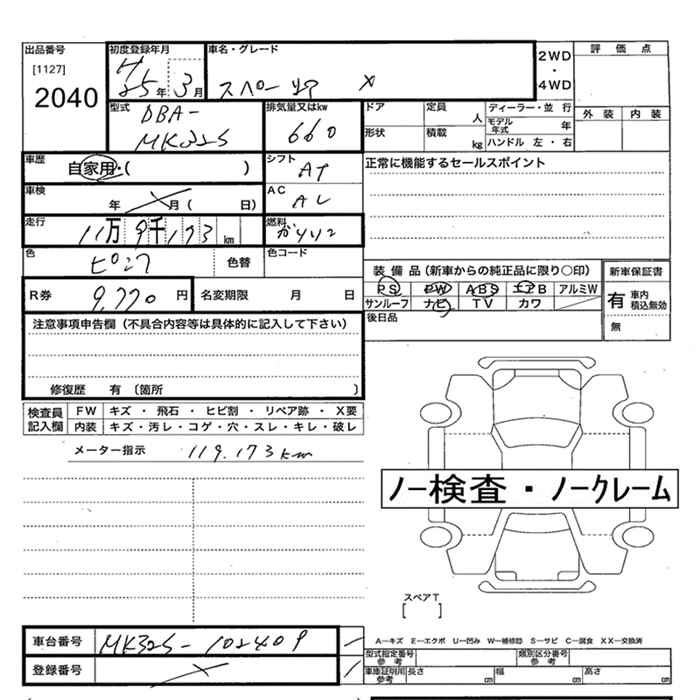 出品番号
[1127]
2040
初度登録年月
H25年 3月
車名・グレード
スペーシア X
2WD
・
4WD
評価点
外装 内装
型式
DBA-
MK32S
排気量又はkw
660
ドア 定員 人
形状 積載 kg
ディーラー・並行
モデル年式 年
ハンドル 左・右
車歴
自家用・( )
シフト
AT
正常に機能するセールスポイント
車検
年 月( 日)
AC
走行
11万9千173km
燃料
ガソリン
色
ピンク
色替
色コード
装備品(新車からの純正品に限り○印)
PS PW ABS エアB アルミW
サンルーフ ナビ TV カワ
新車保証書
有 車内積込無効
無
R券 9,770円
名変期限 月 日
後日品
注意事項申告欄(不具合内容等は具体的に記入して下さい)
修復歴 有〔箇所 〕
検査員記入欄
FW キズ・飛石・ヒビ割・リペア跡・X要
内装 キズ・汚レ・コゲ・穴・スレ・キレ・破レ
メーター指示 119.173km
ノー検査・ノークレーム
スペアT
[ ]
車台番号 MK32S-102409
登録番号
A―キズ E―エクボ U―凹み W―補修跡 S―サビ C―腐食 XX―交換済
型式指定番号 参考
類別区分番号 参考
車庫証明用 参考
長さ cm 幅 cm 高さ cm